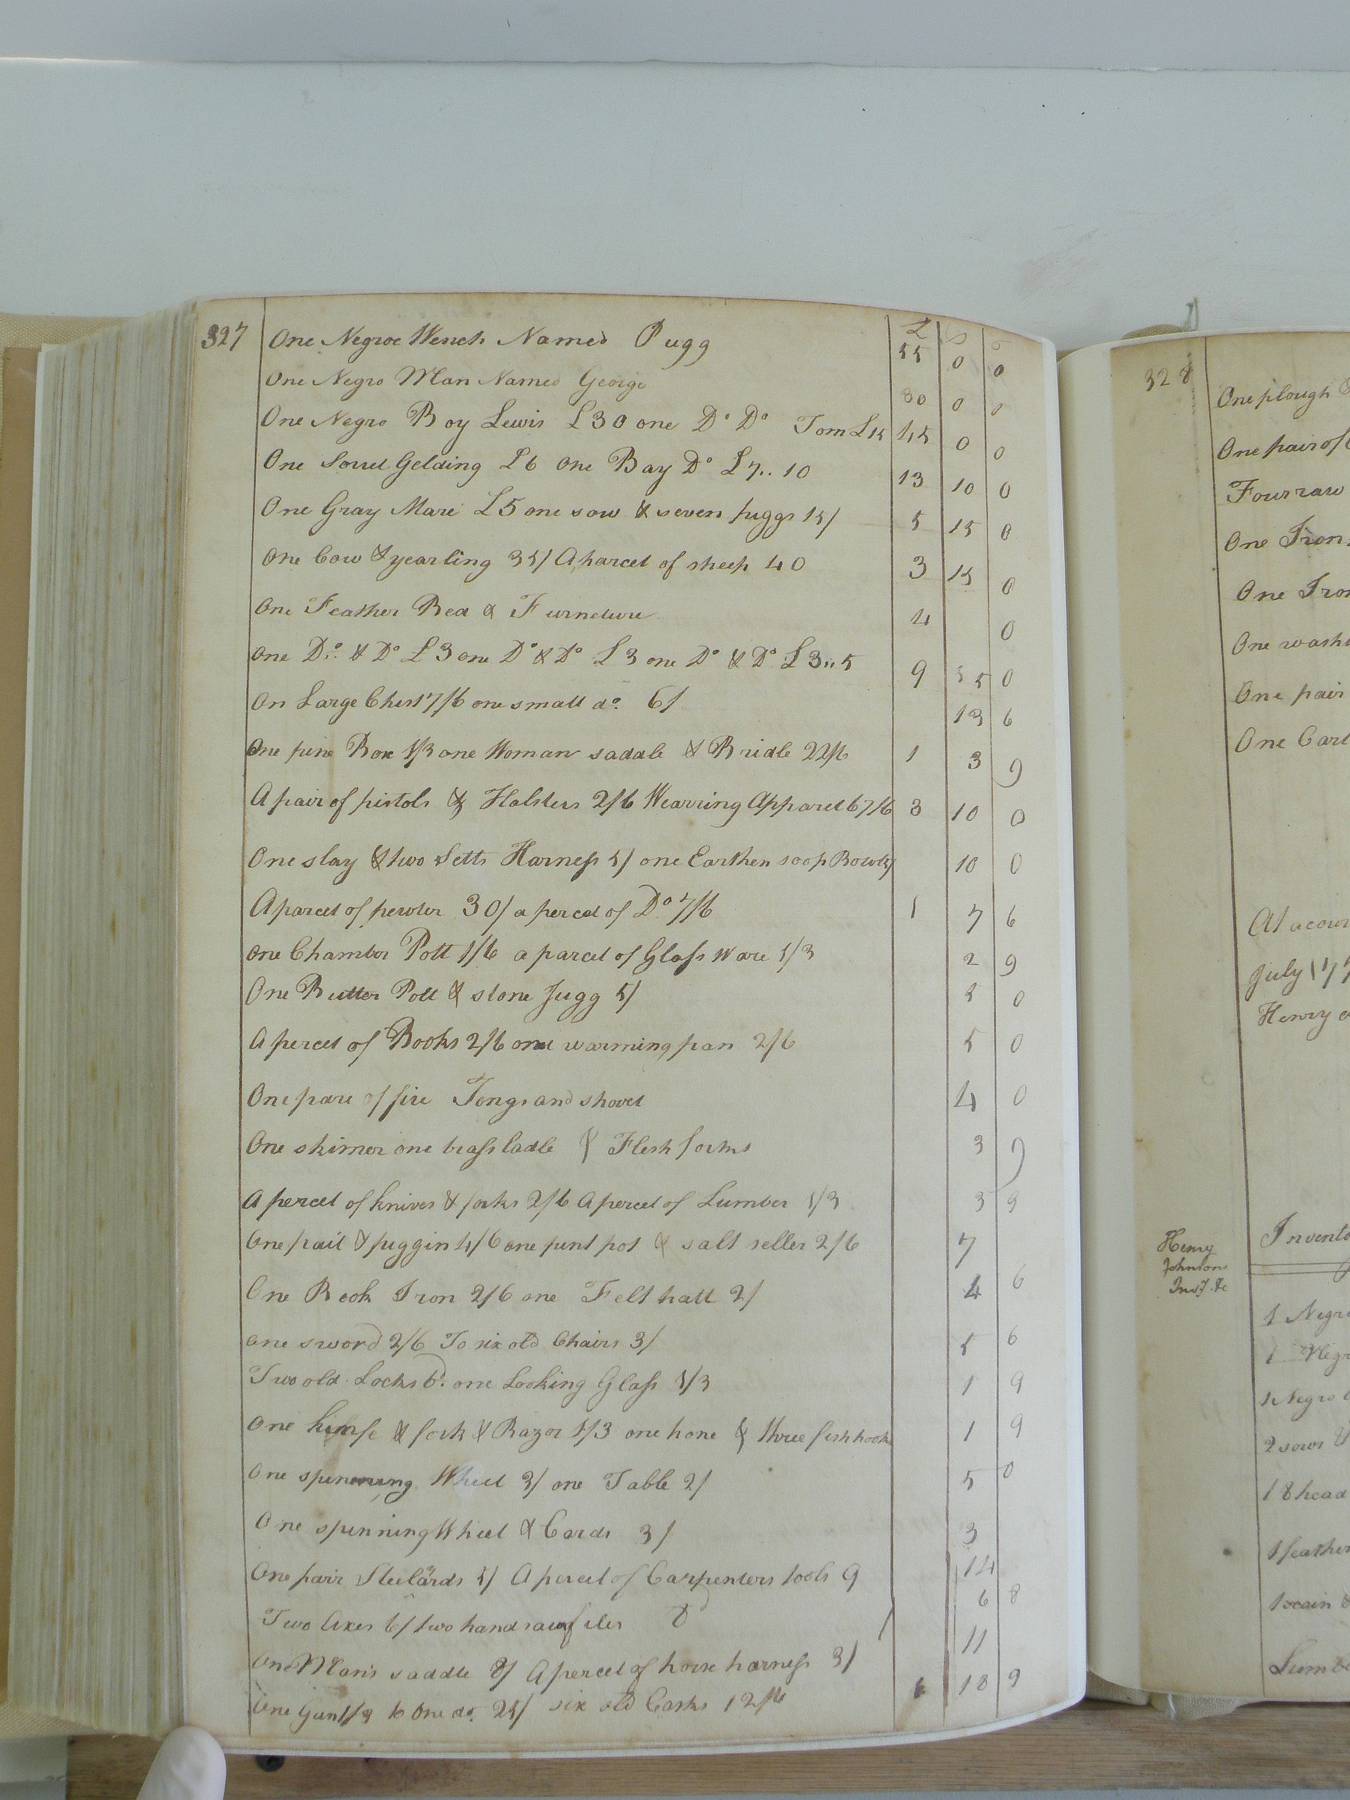 327
£ s
One Negroe Wench Named Pugg 55 0 0
One Negro Man Named George 80 0 0
One Negro Boy Lewis £30 one Do Do Tom £15 45 0 0
One Sorrel Gelding £6 one Bay Do £7..10 13 10 0
One Gray Mare £5 one sow & seven piggs 15/ 5 15 0
One Cow & yearling 35/ A parcel of sheep 40 3 15 0
One Feather Bed & Furneture 4 0
One Do. & Do £3 one Do & Do £3 one Do & Do £3,,5 9 5 0
On Large Chest 7/6 one small do. 6/ 13 6
One pine Box 1/3 one Woman saddle & Bridle 22/6 1 3 9
A pair of pistols & Holsters 2/6 Wearring Apparel 67/6 3 10 0
One slay & two Setts Harness 5/ one Earthen soop Bowl 5/ 10 0
A parcel of pewter 30/ a percel of Do 7/6 1 7 6
One Chamber Pott 1/6 a parcel of Glass Ware 1/3 2 9
One Butter Pott & stone Jugg 5/ 5 0
A percel of Books 2/6 one warming pan 2/6 5 0
One pare of fire Tongs and shovel 4 0
One skimer one brass ladle & Flesh forks 3 9
A percel of knives & forks 2/6 A percel of Lumber 1/3 3 9
One pail & piggin 4/6 one pint pot & salt seller 2/6 7
One Book Iron 2/6 one Felt hatt 2/ 4 6
One sword 2/6 To six old Chairs 3/ 5 6
Two old Locks 6d. one Looking Glass 1/3 1 9
One & fork & Razor 1/3 one hone & three fish hooks 1 9
One spinning Wheel 3/ one Table 2/ 5 0
One spinning Wheel & Cards 3/ 3
One pair Steelards 5/ A percel of Carpenters tools 9 14
Two Axes 6/ two hand saw files 8d 6 8
One Man's saddle 8/ A percel of horse harness 3/ 11
One Gun One do. 25/ six old Casks 12/6 6 18 9
328
One plough
One pair of
Four raw
One Iron
One
One wash
One pair
One
At a cour
July 17
Henry
Henry
Johnsons
Inv.t &c
Invento
1 Negro
1 Negr
1 Negro
2 sows
18 head
1 feather
Lumb